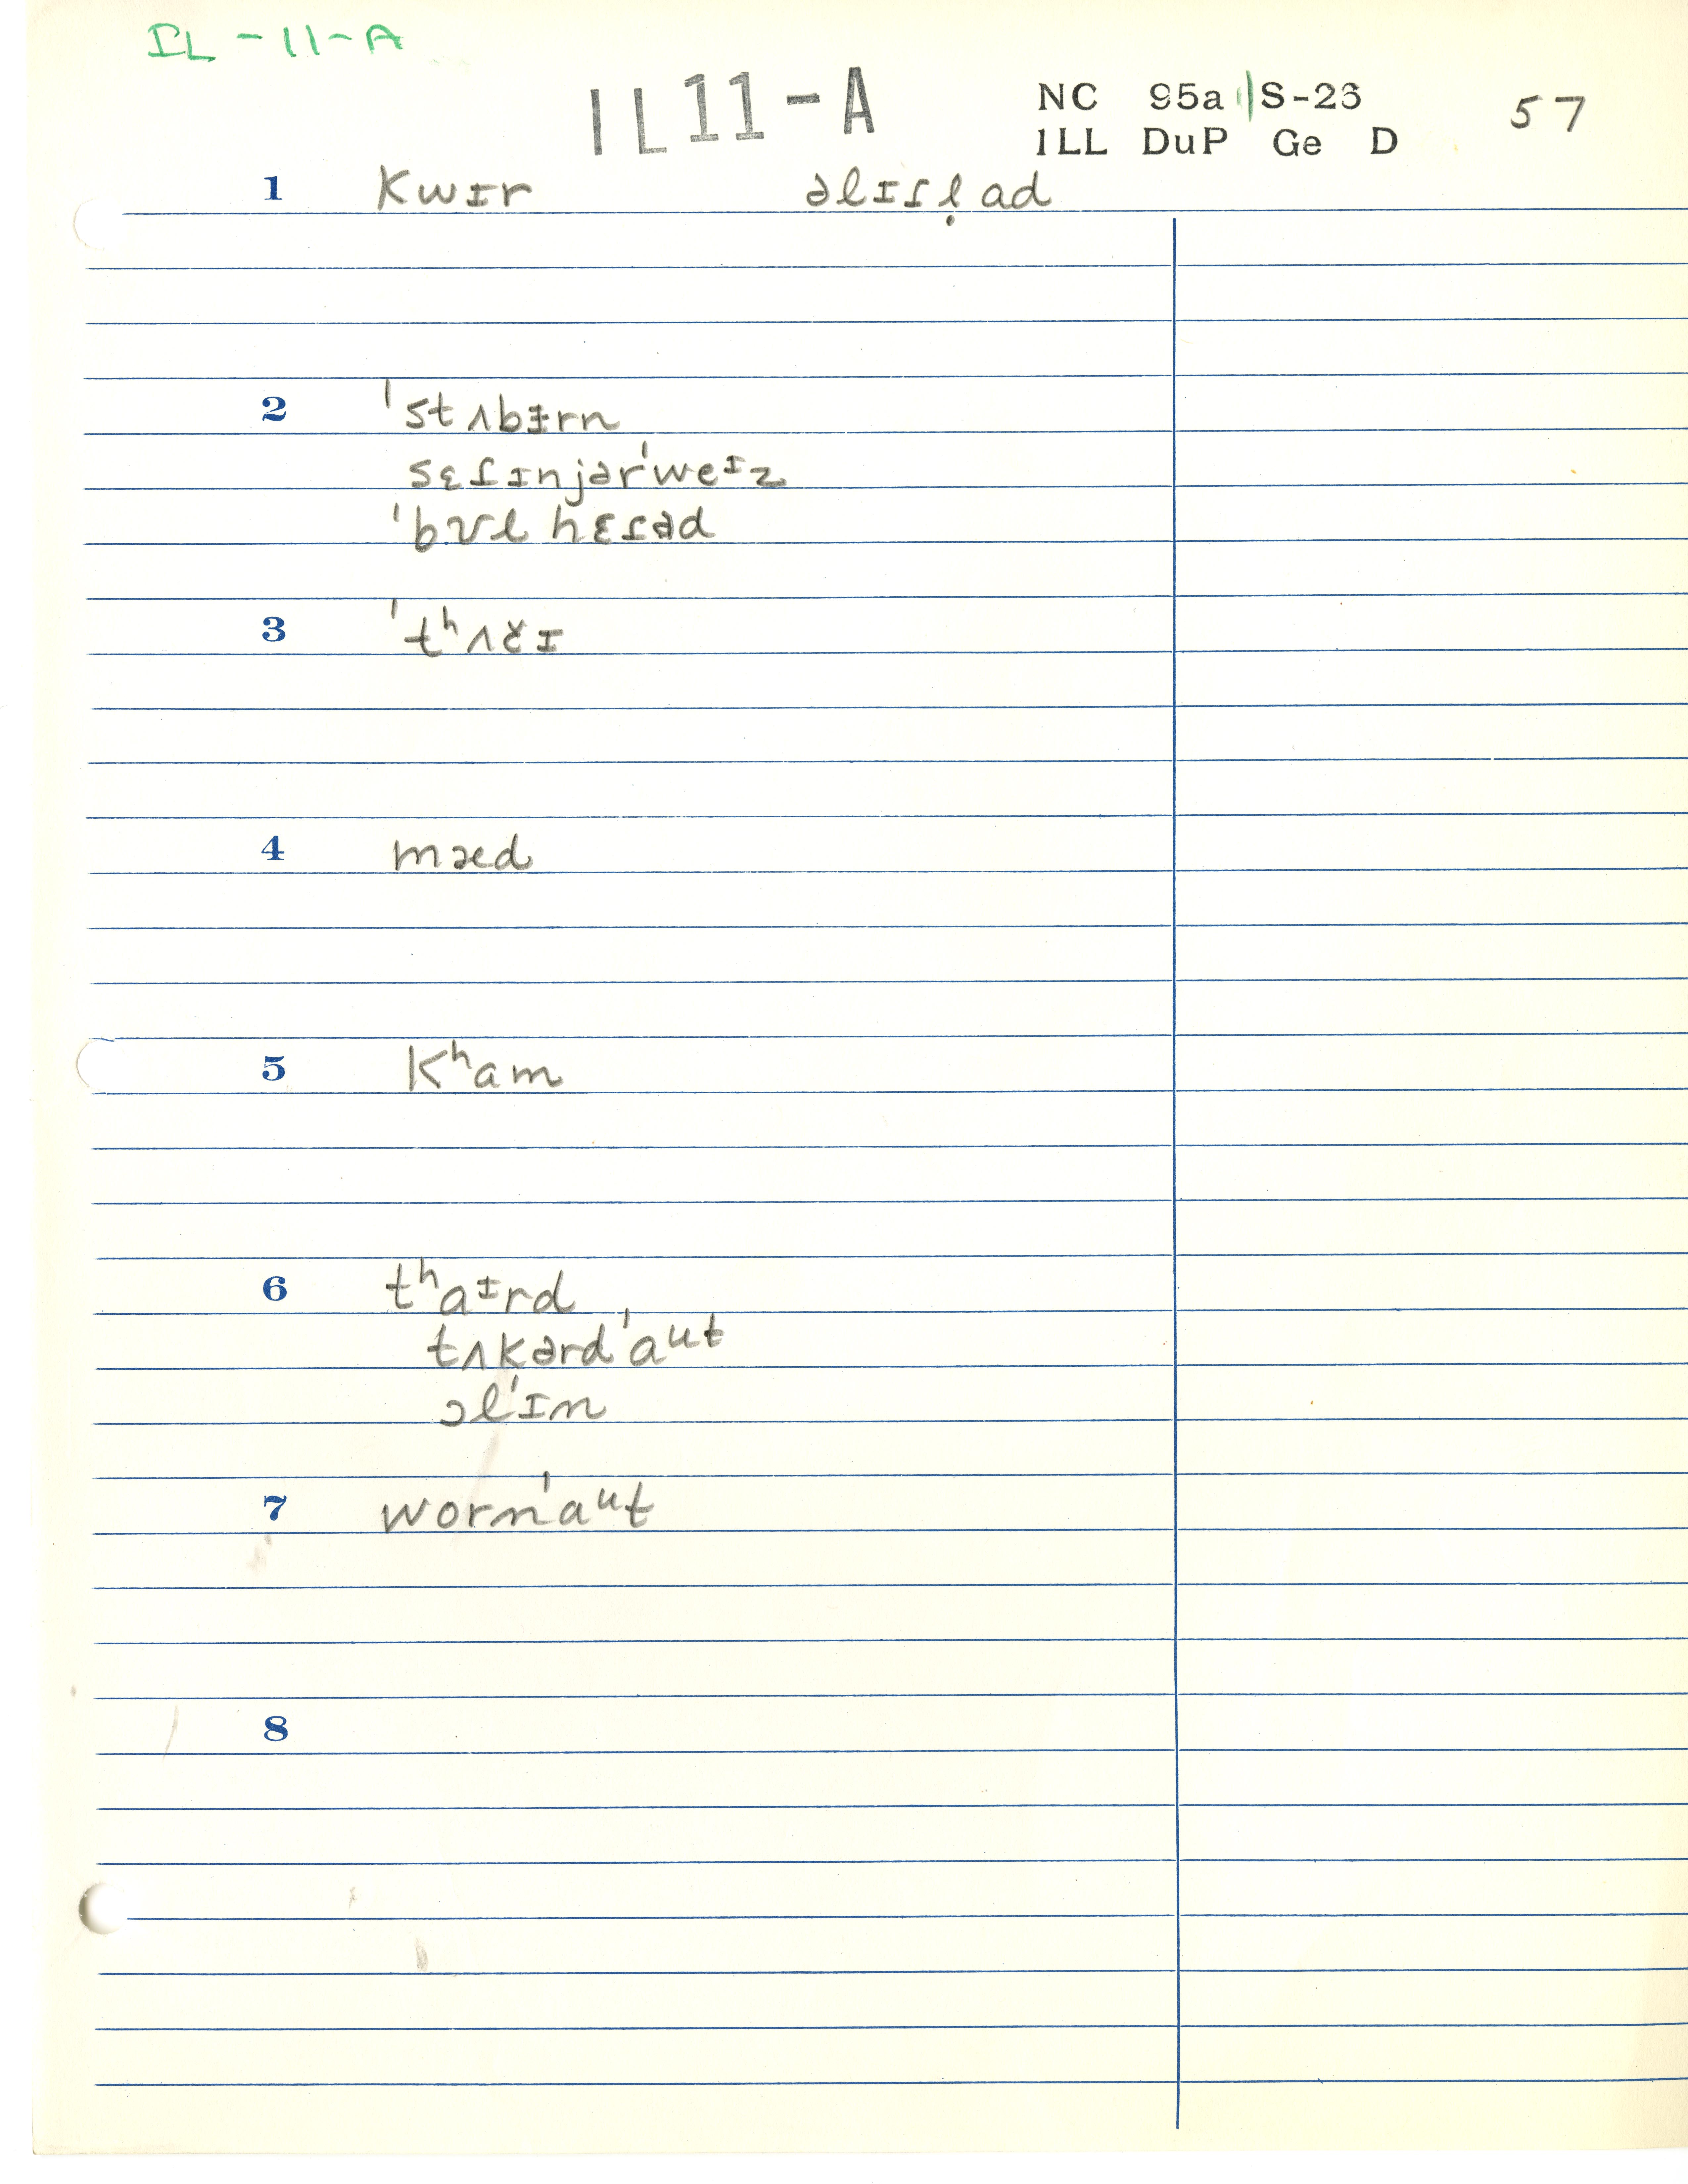 IL-11-A
IL11-A
NC 95a S-23 57
ILL DuP Ge D
1 kwɪr əlɪɾl̩ ad
2 ˈstʌbɨrn
sɛɾɪnjərˈweᶦz
ˈbʊl hɛɾəd
3 ˈtʰʌč̌ɪ
4 mæd
5 kʰam
6 tʰaᶦrd
tʌkərdˈaᵘt
ɔlˈɪn
7 wornˈaᵘt
8